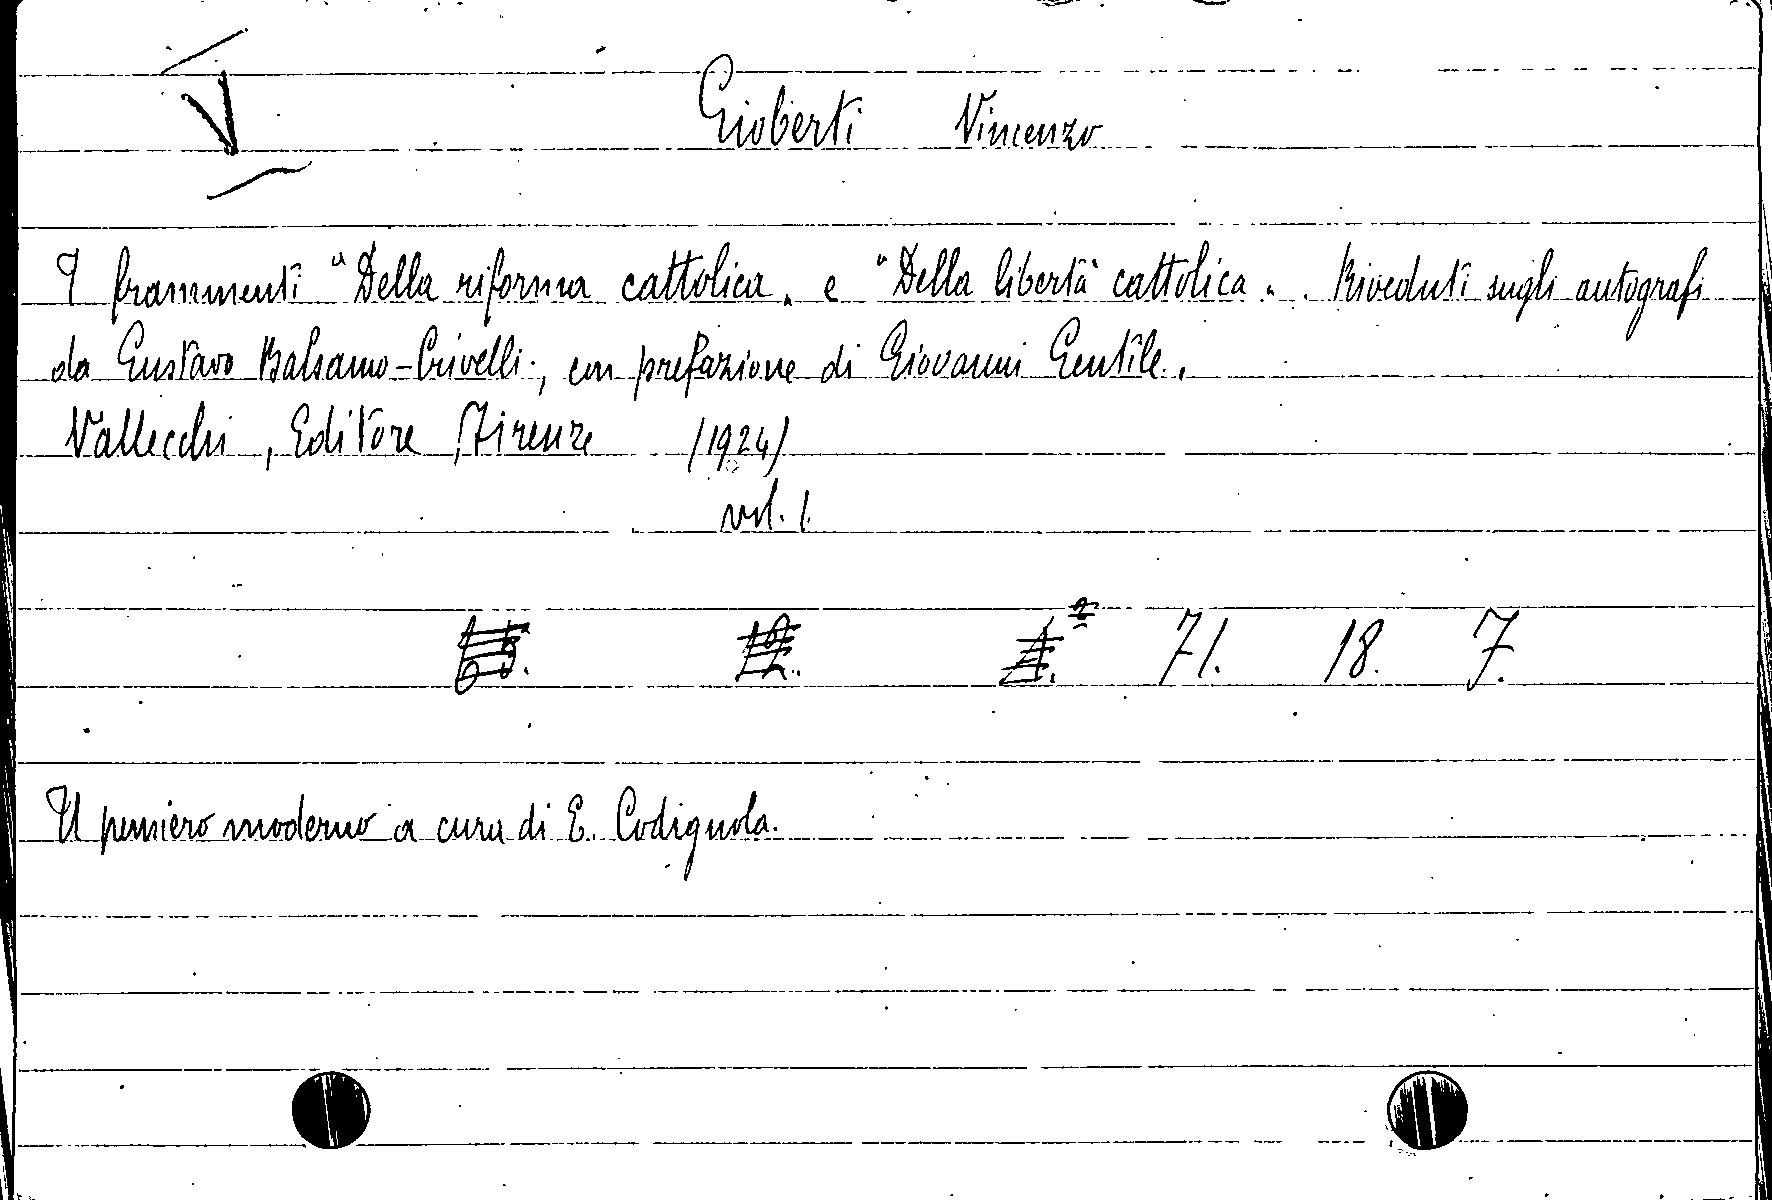 V
Gioberti Vincenzo
I frammenti "Della riforma cattolica" e "Della libertà cattolica". Riveduti sugli autografi
da Gustavo Balsamo-Crivelli, con prefazione di Giovanni Gentile.
Vallecchi, Editore, Firenze (1924)
vol. 1.
71. 18. 7.
Il pensiero moderno a cura di E. Codignola.